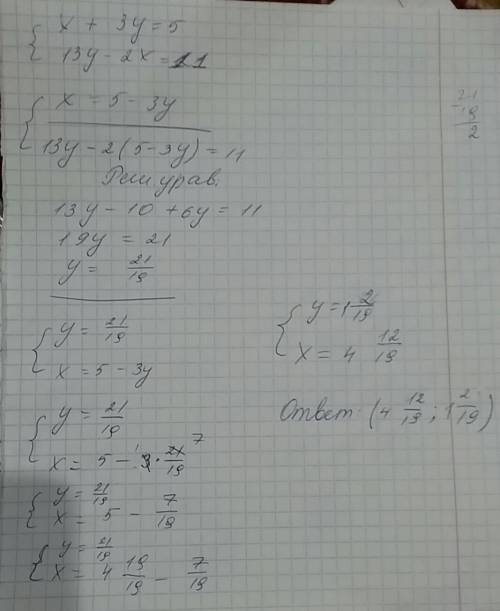 x + 3y = 5
13y - 2x = 11
x = 5 - 3y
13y - 2(5 - 3y) = 11
Реш урав.
13y - 10 + 6y = 11
19y = 21
y = 21/19
y = 21/19
x = 5 - 3y
y = 21/19
x = 5 - 3 · 21/19 7
y = 21/19
x = 5 - 7/19
y = 21/19
x = 4 19/19 - 7/19
21
- 19
2
y = 1 2/19
x = 4 12/19
Ответ: (4 12/19 ; 1 2/19)